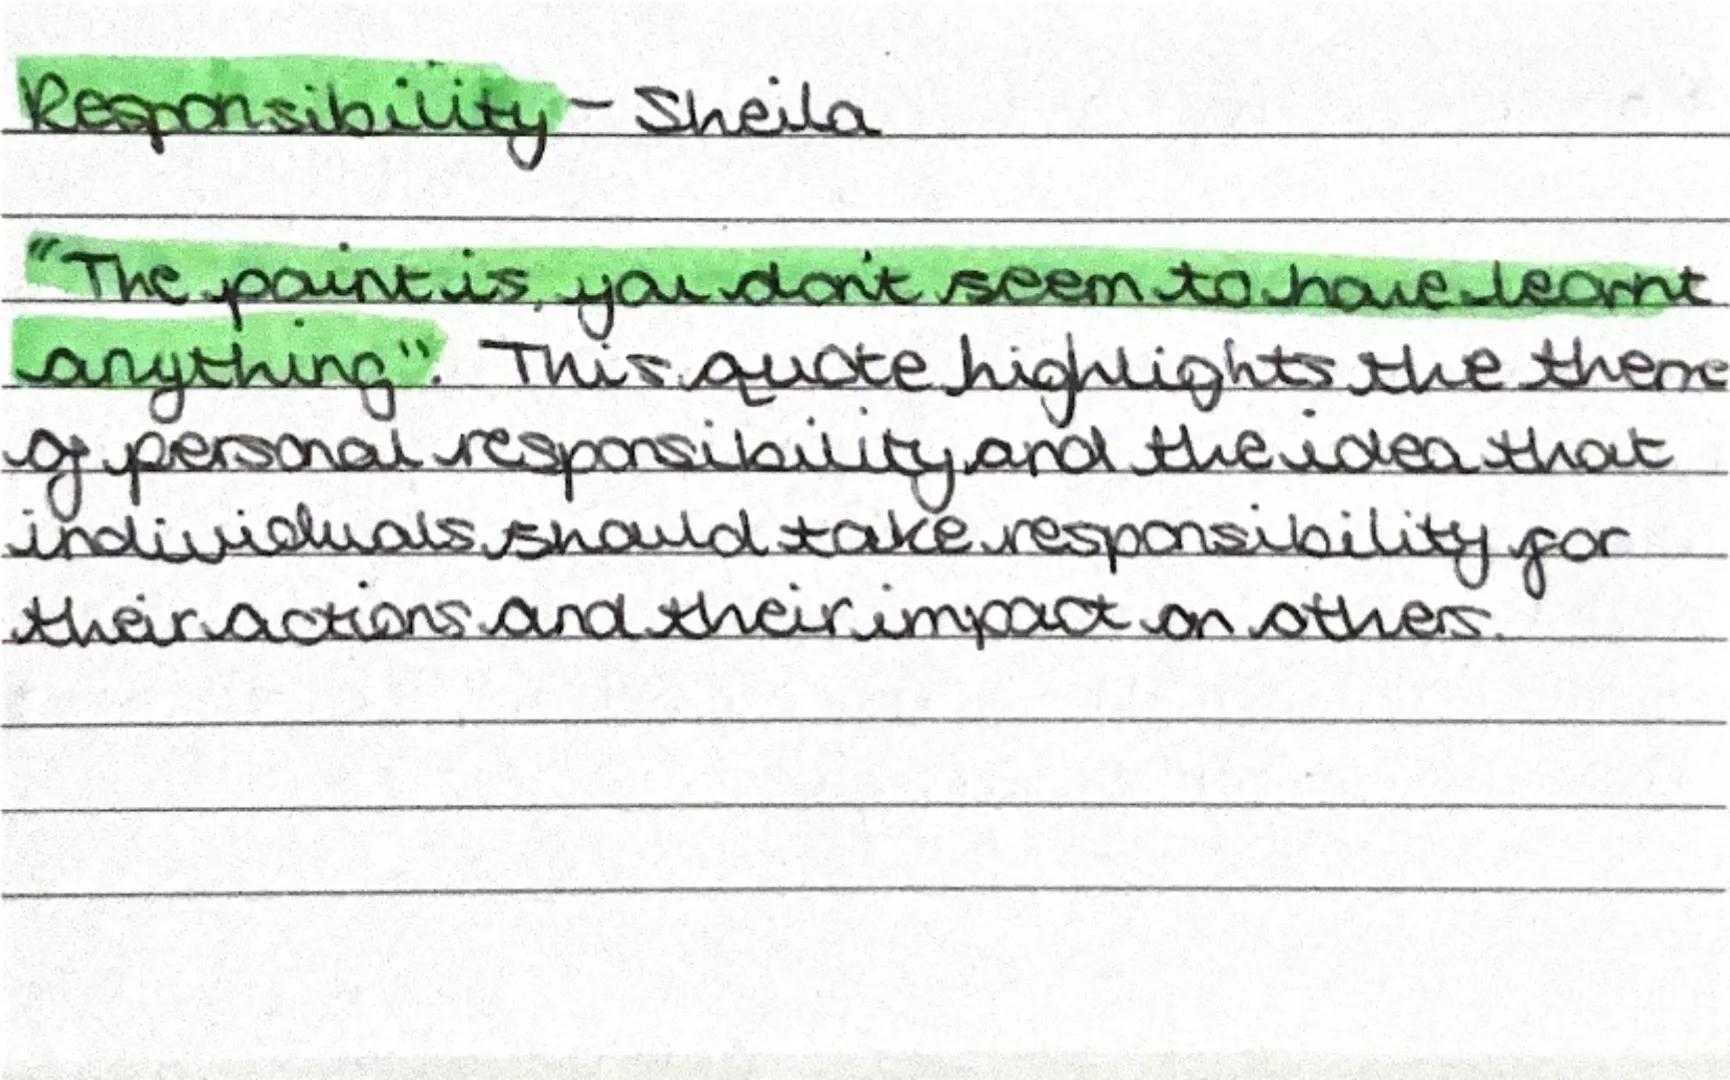 Responsibility - Sheila
"The point is, you don't seem to have learnt
anything". This quote highlights the theme
of personal responsibility and the idea that
individuals should take responsibility for
their actions and their impact on others.